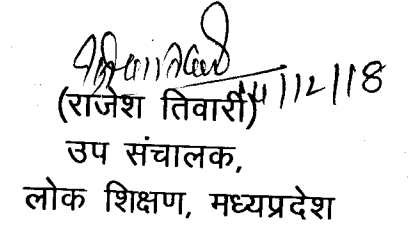 11/12/18
(राजेश तिवारी)
उप संचालक,
लोक शिक्षण, मध्यप्रदेश